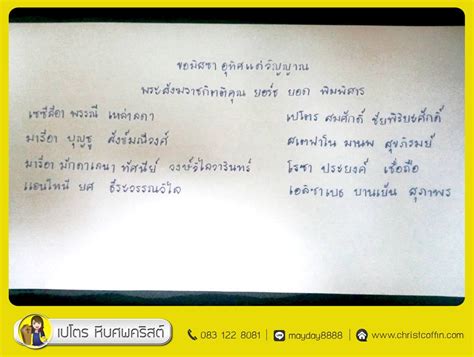 ขอมิสซา อุทิศแด่วิญญาณ
พระสังฆราชกิตติคุณ ยอร์ช ยอด พิมพิสาร
เซซีลีอา พรรณี เหล่าลดา
มารีอา บุญชู สังข์มณีวงศ์
มารีอา มักดาเลนา ทัศนีย์ วงษ์วิไลวารินทร์
แอนโทนี ยศ ธีระวรรณวิไล
เปโตร สมศักดิ์ ชัยพิริยะศักดิ์
สเตฟาโน มานพ สุขภิรมย์
โรซา ประยงค์ เชื้อถือ
เอลิซาเบธ บานเย็น สุภาพร
เปโตร หีบศพคริสต์
083 122 8081 | mayday8888 | www.christcoffin.com